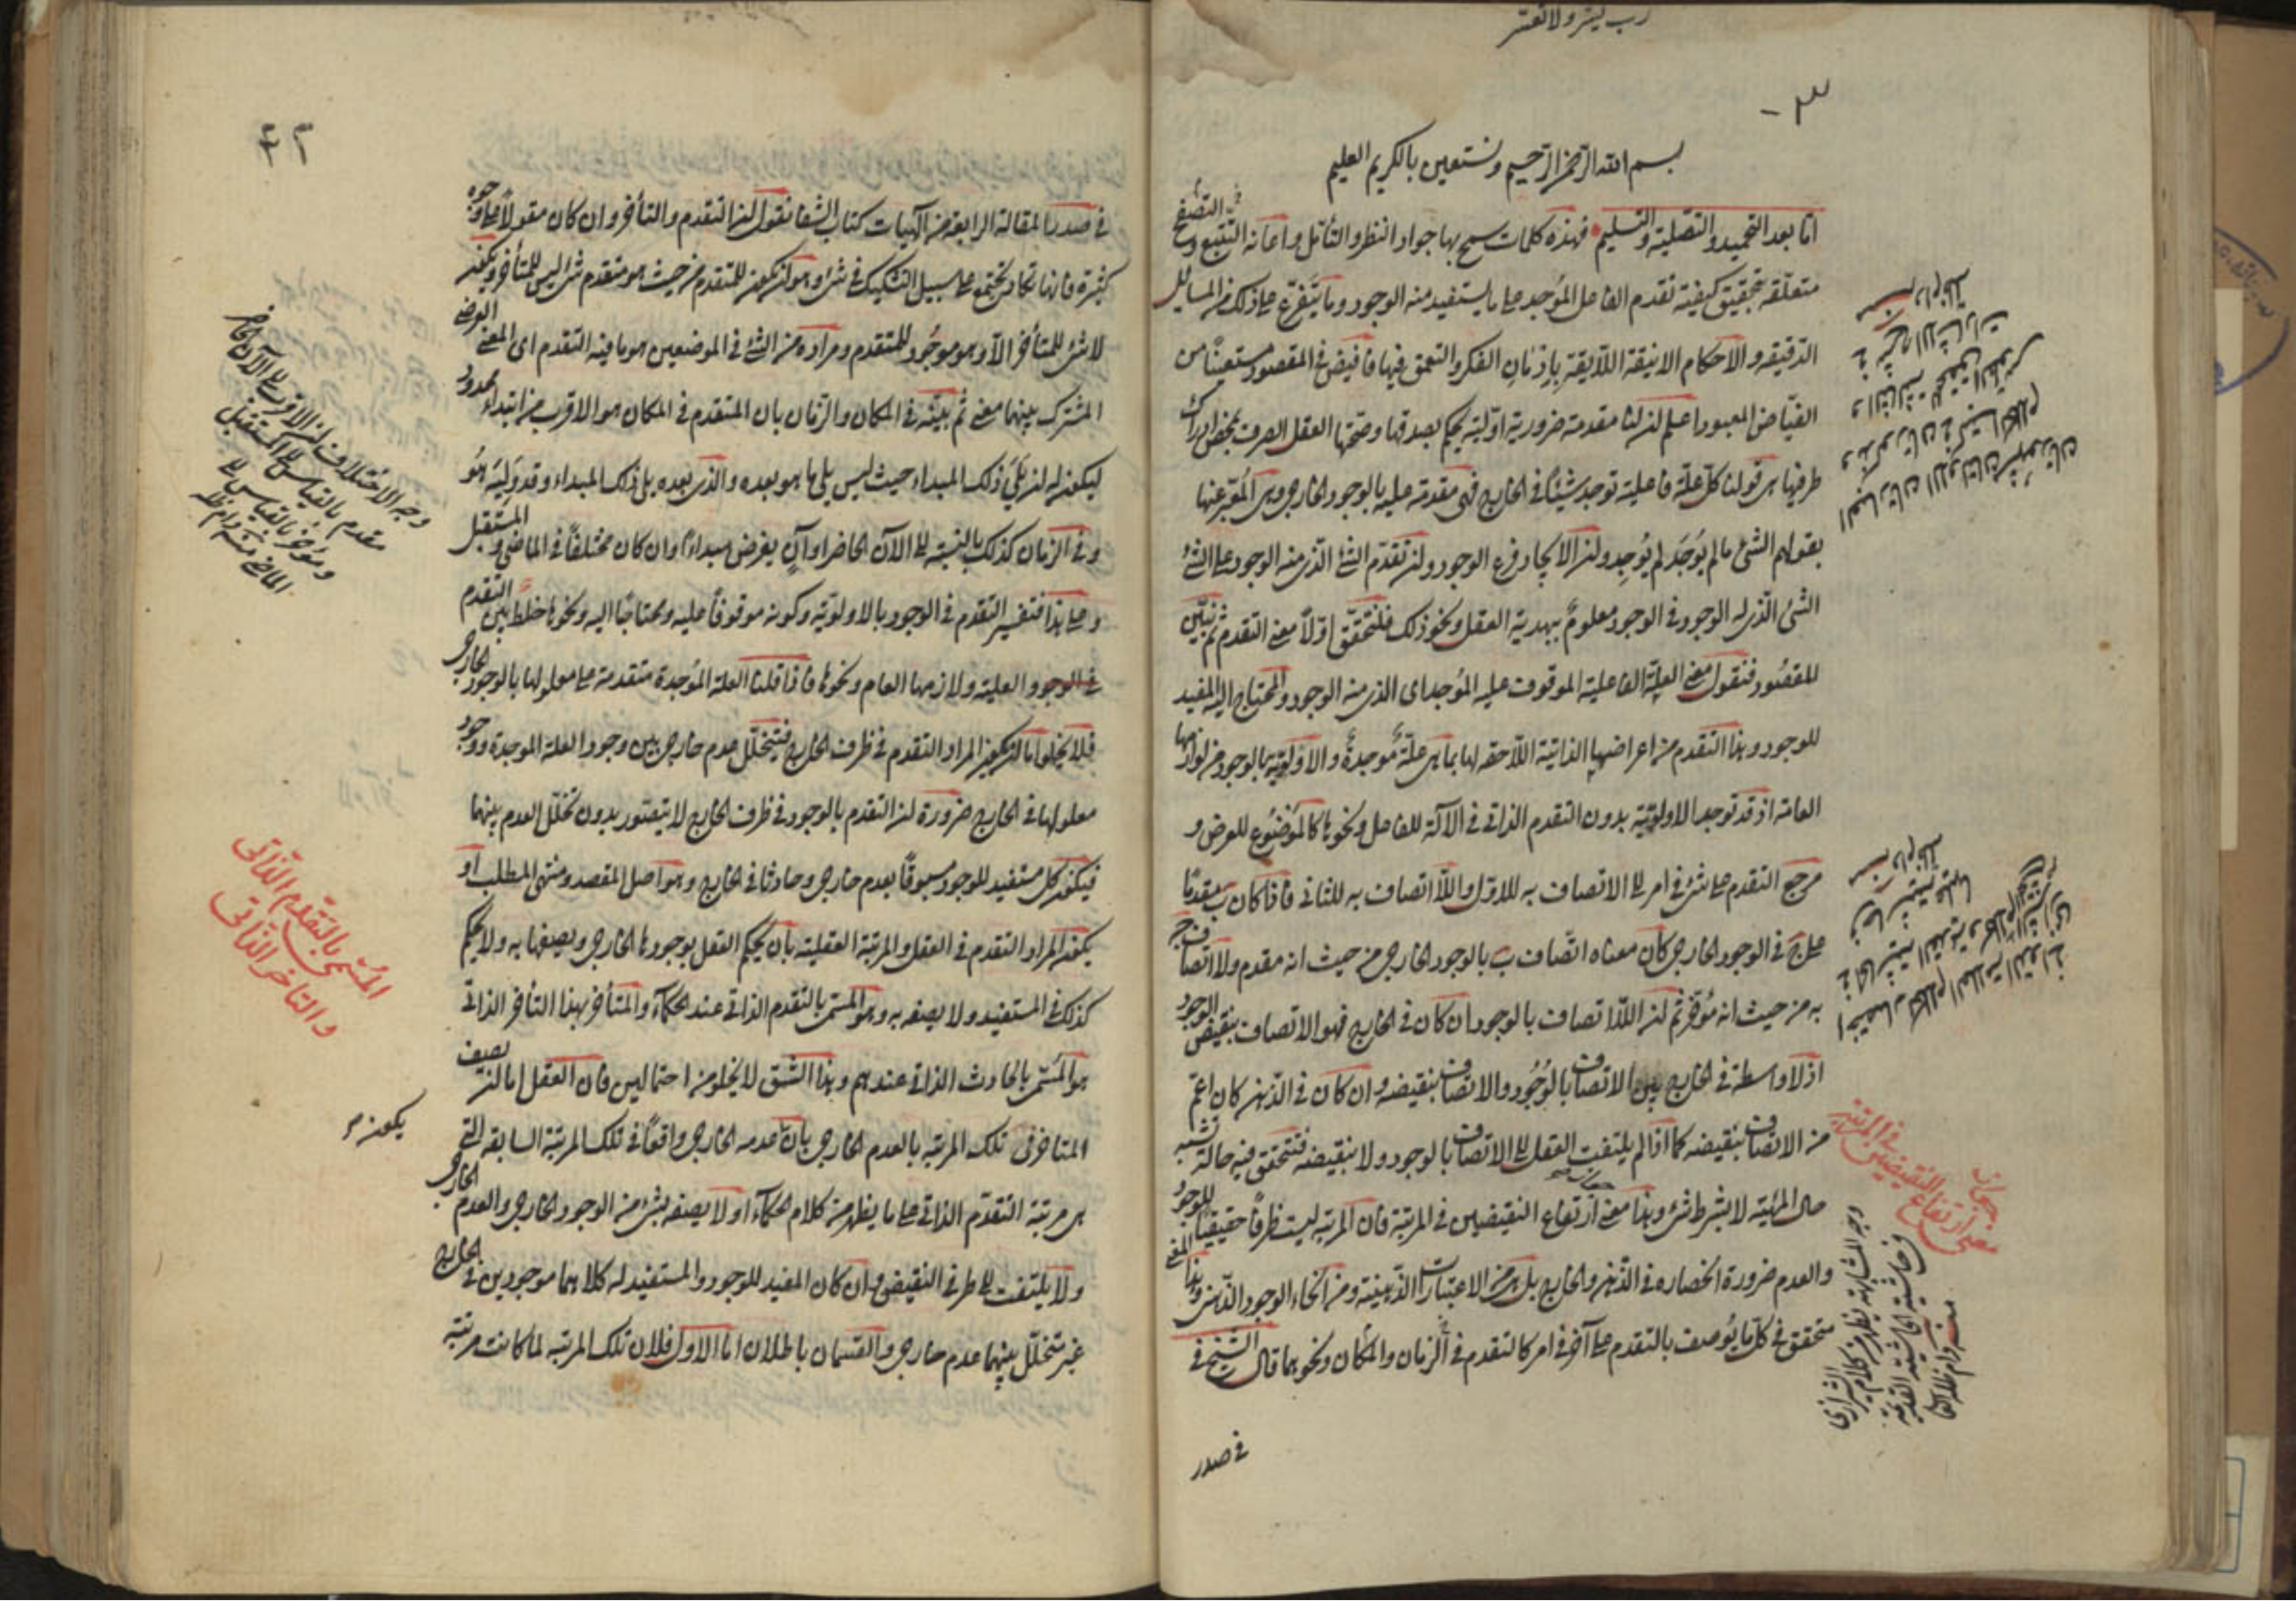 رب يسر ولا تعسر
بسم الله الرحمن الرحيم ونستعين بالكريم العليم
اما بعد التحميد والتصلية والتسليم فهذه كلمات سبح بها جواد النظر والتأمل واعانه التتبع والتصفح
متعلقة بتحقيق كيفية تقدم الفاعل الموجد على ما يستفيد منه الوجود وما يتفرع على ذلك من المسائل
الدقيقة والاحكام الانيقة اللايقة بإذعان الفكر والتعمق فيها فأفيض في المقصود مستعينا من
الفياض المعبود اعلم ان لنا مقدمة ضرورية اولية يحكم بصدقها وصحتها العقل الصرف بمحض ادراك
طرفيها هي قولنا كل علة فاعلية توجد شيئا في الخارج فهي مقدمة عليه بالوجود الخارجي وهي المعبر عنها
بقولهم الشئ ما لم يوجد لم يوجد وان الايجاد فرع الوجود وان تقدم الشئ الذي منه الوجود على الشئ
الشئ الذي له الوجود في الوجود معلوم ببديهة العقل ونحو ذلك فلنحقق اولا معنى التقدم ثم نبين
المقصود فنقول معنى العلة الفاعلية الموقوف عليه الموجد اى الذي منه الوجود والمحتاج اليه المفيد
للوجود وهذا التقدم من اعراضها الذاتية اللاحقة لها بما هي علة موجدة والاولوية بالوجود من لوازمها
العامة اذ قد توجد الاولوية بدون التقدم الذاتي في الآلة للفاعل ونحوها كالموضوع للعرض و
مرجع التقدم على شئ في امر الى الاتصاف به للاول واللا اتصاف به للثاني فاذا كان ب مقدما
على ج في الوجود الخارجي كان معناه اتصاف ب بالوجود الخارجي من حيث انه مقدم ولا اتصاف ج
به من حيث انه مؤخر ثم ان اللا اتصاف بالوجود ان كان في الخارج فهو الاتصاف بنقيض الوجود
اذ لا واسطة في الخارج بين الاتصاف بالوجود والاتصاف بنقيضه وان كان في الذهن كان اعم
من الاتصاف بنقيضه كما اذا لم يلتفت العقل الى الاتصاف بالوجود ولا بنقيضه فتتحقق فيه حالة تشبه
حال المهية لا بشرط شئ وهذا معنى ارتفاع النقيضين في المرتبة فان المرتبة ليست ظرفا حقيقيا للوجود
والعدم ضرورة انحصاره في الذهن والخارج بل هي من الاعتبارات الذهنية ومن انحاء الوجود الذهني وهذا المعنى
متحقق في كل ما يوصف بالتقدم على آخر في امر كالتقدم في الزمان والمكان ونحوهما قال الشيخ في
في صدر
معنى ارتفاع النقيضين في المرتبة
وجه المشابهة يظهر من كلام الشيرازي
في حاشية الحاشية القديمة
منه دام ظله
في صدر المقالة الرابعة من الهيات كتاب الشفا نقول ان التقدم والتأخر وان كان مقولا على وجوه
كثيرة فانها تكاد تجتمع على سبيل التشكيك في شئ وهو ان يكون للمتقدم من حيث هو متقدم شئ ليس للمتأخر ويكون
لا شئ للمتأخر الا وهو موجود للمتقدم ومراده من الشئ في الموضعين هو ما فيه التقدم اى المعنى العرضي
المشترك بينهما معنى ثم بينه في المكان والزمان بان المتقدم في المكان هو الاقرب من ابتداء محدود
ليكون له ان يلي ذلك المبداء حيث ليس يلي ما هو بعده والذي بعده يلي ذلك المبداء وقد وليه هو
وفي الزمان كذلك بالنسبة الى الآن الحاضر او آن يفرض مبداء وان كان مختلفا في الماضي والمستقبل
وعلى هذا فتفسير التقدم في الوجود بالاولوية وكونه موقوفا عليه ومحتاجا اليه ونحوها خلط بين التقدم
في الوجود والعلية ولازمها العام ونحوها فاذا قلنا العلة الموجدة متقدمة على معلولها بالوجود الخارجي
فلا يخلو اما ان يكون المراد التقدم في ظرف الخارج فيتخلل عدم خارجي بين وجود العلة الموجدة ووجود
معلولها في الخارج ضرورة ان التقدم بالوجود في ظرف الخارج لا يتصور بدون تخلل العدم بينهما
فيكون كل مستفيد للوجود مسبوقا بعدم خارجي وحادثا في الخارج وهو اصل المقصد ومنتهى المطلب او
يكون المراد التقدم في العقل والمرتبة العقلية بان يحكم العقل بوجودها الخارجي ويصفها به ولا يحكم
كذلك في المستفيد ولا يصفه به وهو المسمى بالتقدم الذاتي عند الحكماء والمتأخر بهذا التأخر الذاتي
هو المسمى بالحادث الذاتي عندهم وهذا الشق لا يخلو من احتمالين فان العقل اما ان يصف
المتاخر في تلك المرتبة بالعدم الخارجي بان عدمه الخارجي واقعا في تلك المرتبة السابقة التي
هي مرتبة التقدم الذاتي على ما يظهر من كلام الحكماء او لا يصفه بشئ من الوجود الخارجي والعدم الخارجي
ولا يلتفت الى طرفي النقيض وان كان المفيد للوجود والمستفيد له كلاهما موجودين في الخارج
غير متخلل بينهما عدم خارجي والقسمان باطلان اما الاول فلان تلك المرتبة لما كانت مرتبة
وجه الاختلاف ان الاقرب الى الآن الحاضر
مقدم بالقياس الى المستقبل
ومؤخر بالقياس الى
الماضي منه دام ظله
المسمى بالتقدم الذاتي
والتاخر الذاتي
يكون